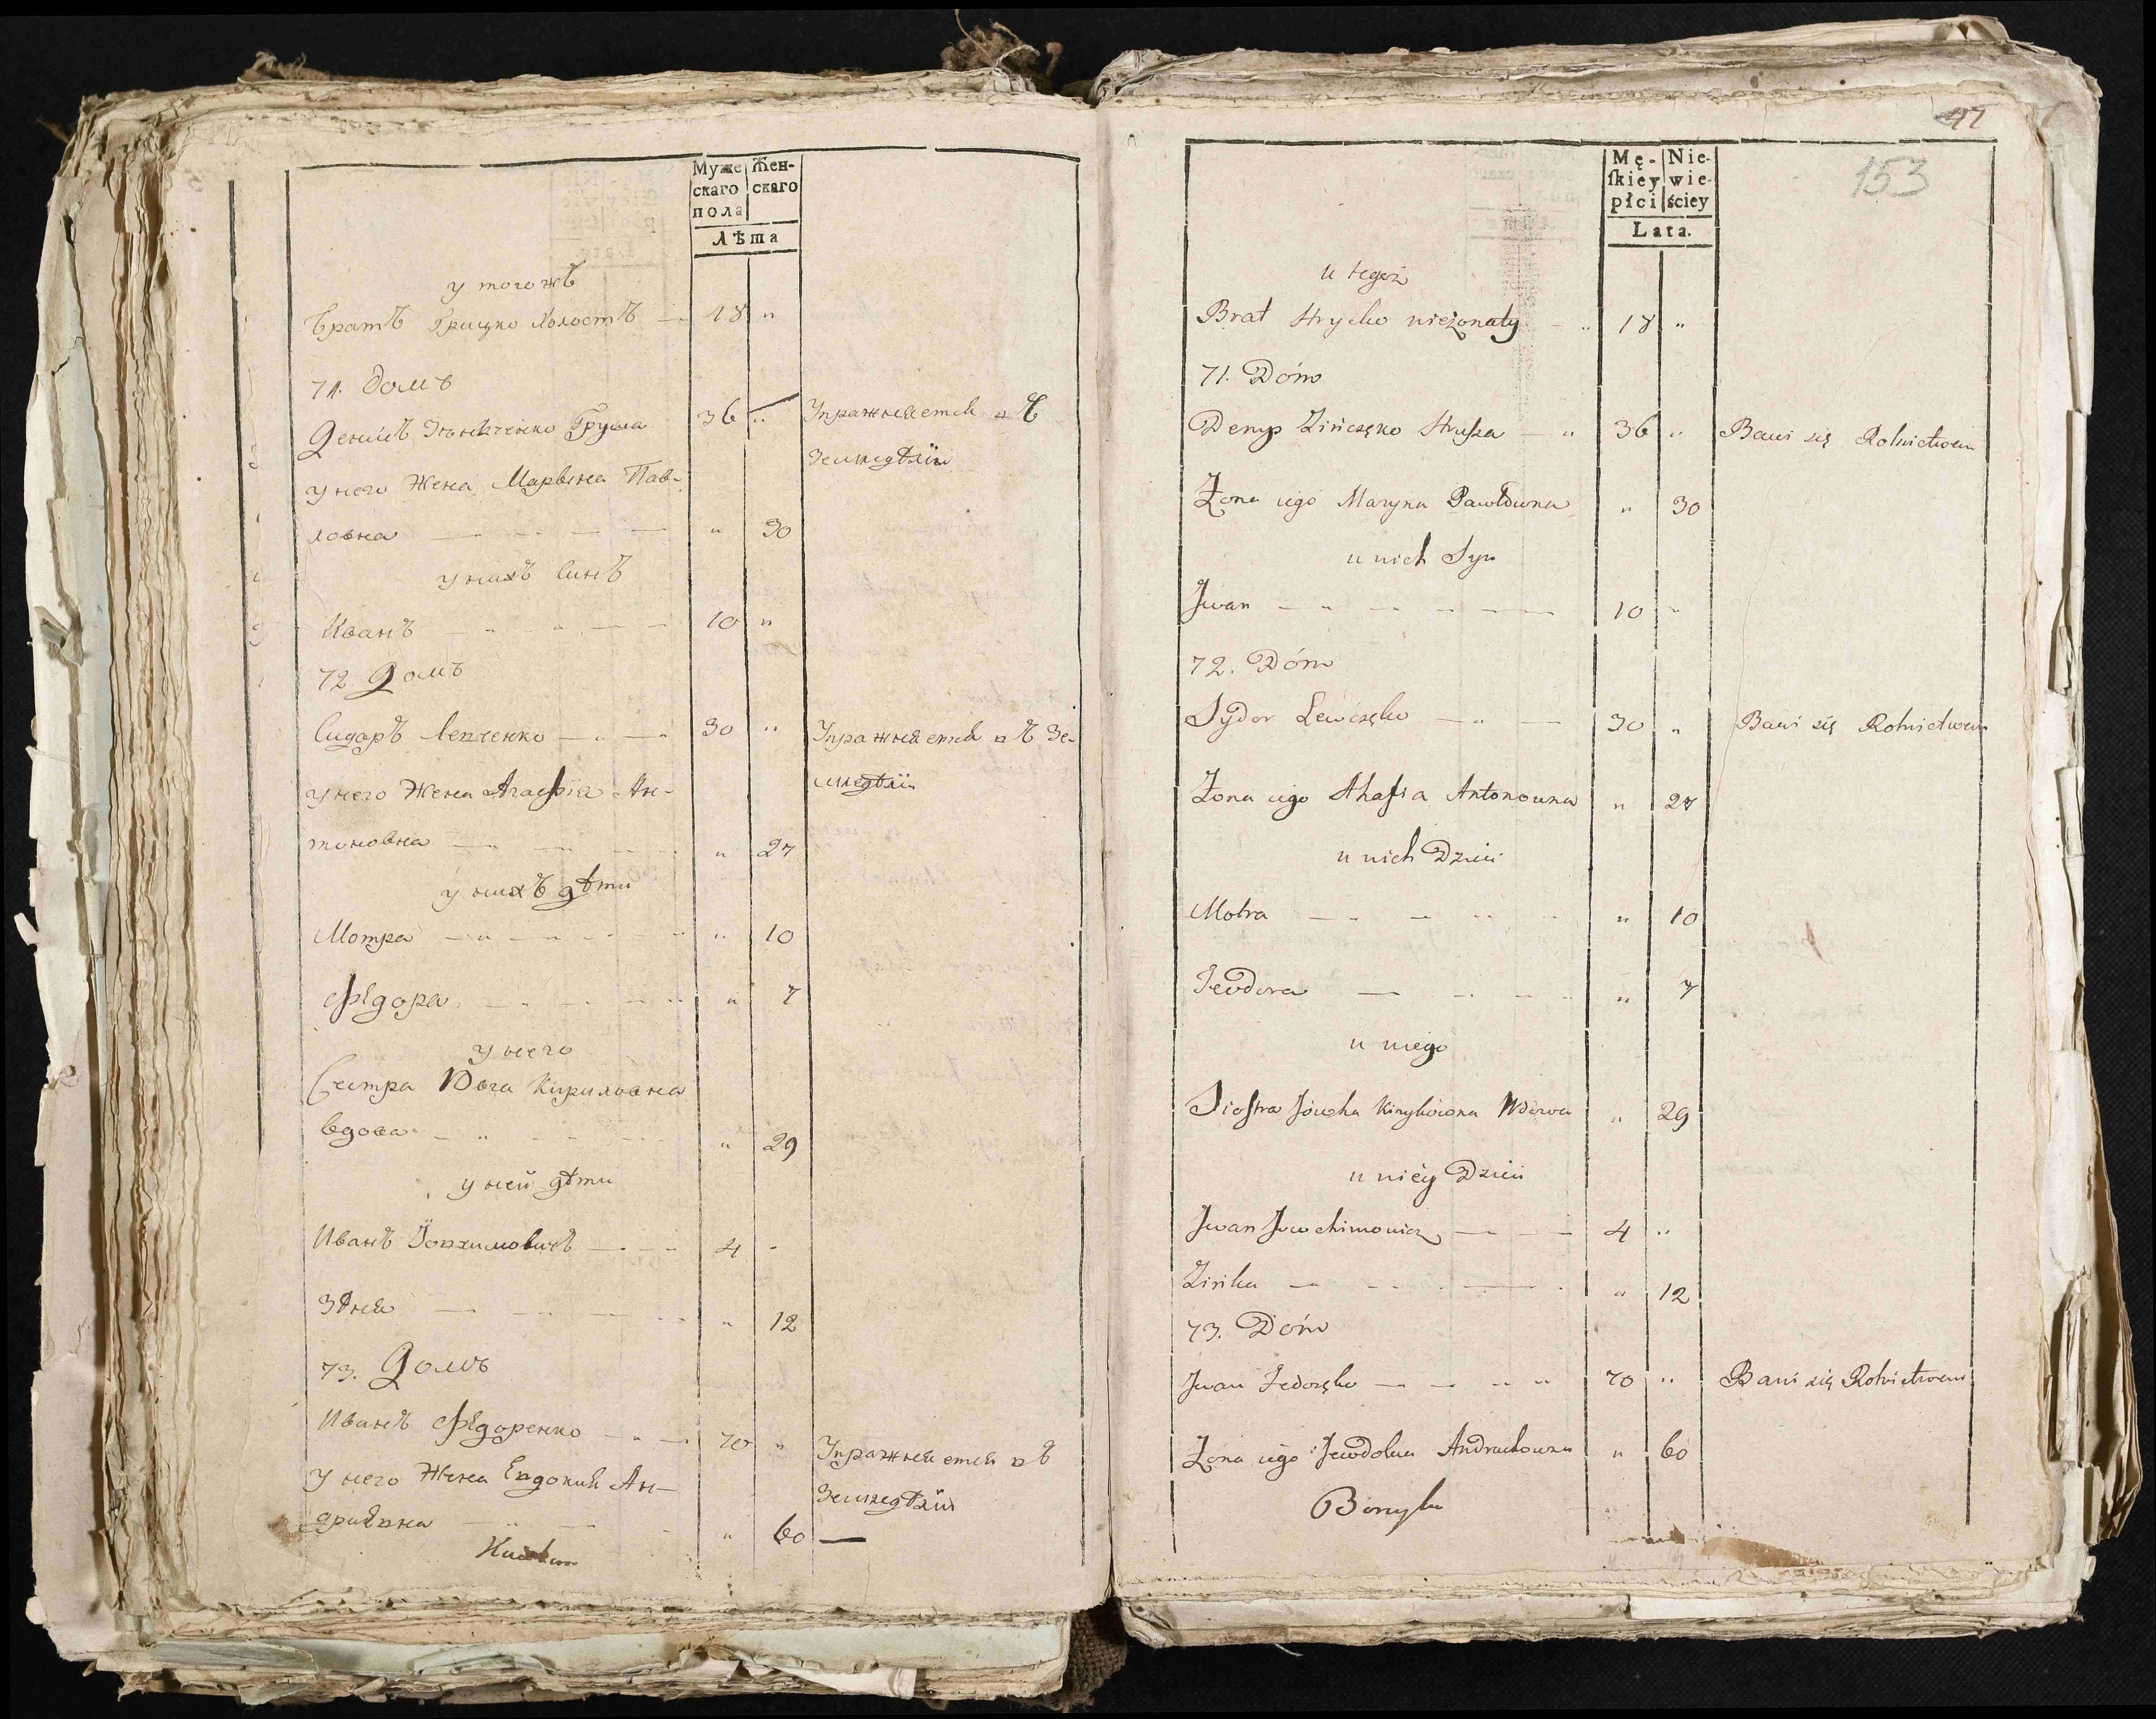 Муже
скаго
пола
Жен-
скаго
Лѣта
у тогожъ
Братъ Грицко холостъ 18 "
71. домъ
Денисъ Груша 36 " Упражняется въ
земледѣліи
у него Жена Марына Пав-
ловна " 30
у нихъ Синъ
Иванъ 10 "
72. Домъ
Сидоръ Левченко 30 " Упражняется въ Зе-
мледѣліи
у него Жена Агафія Ан-
тоновна " 27
у нихъ дѣти
Мотра " 10
Ѳедора " 7
у него
Сестра Ювга Кириловна
вдова " 29
у ней дѣти
Иванъ Іовхимовичъ 4 "
Зѣнья " 12
73. Домъ
Иванъ Ѳедоренко 70 " Упражняется въ
у него Жена Евдокия Ан- Земледѣліи
дриевна " 60 —
47
153
Mę-
ſkiey
płci
Nie-
wie-
ściey
Lata.
u tegoż
Brat Hrycko nieżonaty 18 "
71. Dóm
Denys Zińczęko Hrusza 36 " Bawi się Rolnictwem
Zona iego Maryna Pawłowna " 30
u nich Syn
Jwan 10 "
72. Dóm
Sydor Lewczęko 30 " Bawi się Rolnictwem
Zona iego Ahafia Antonowna " 27
u nich Dzieci
Motra " 10
Teodora " 7
u niego
Siostra Jówcha Kiryłowna Wdowa " 29
u niéy Dzieci
Jwan Jwochimowicz 4 "
Zińka " 12
73. Dóm
Jwan Fedoręko 70 " Bawi się Rolnictwem
Zona iego Jewdokia Andruchowna " 60